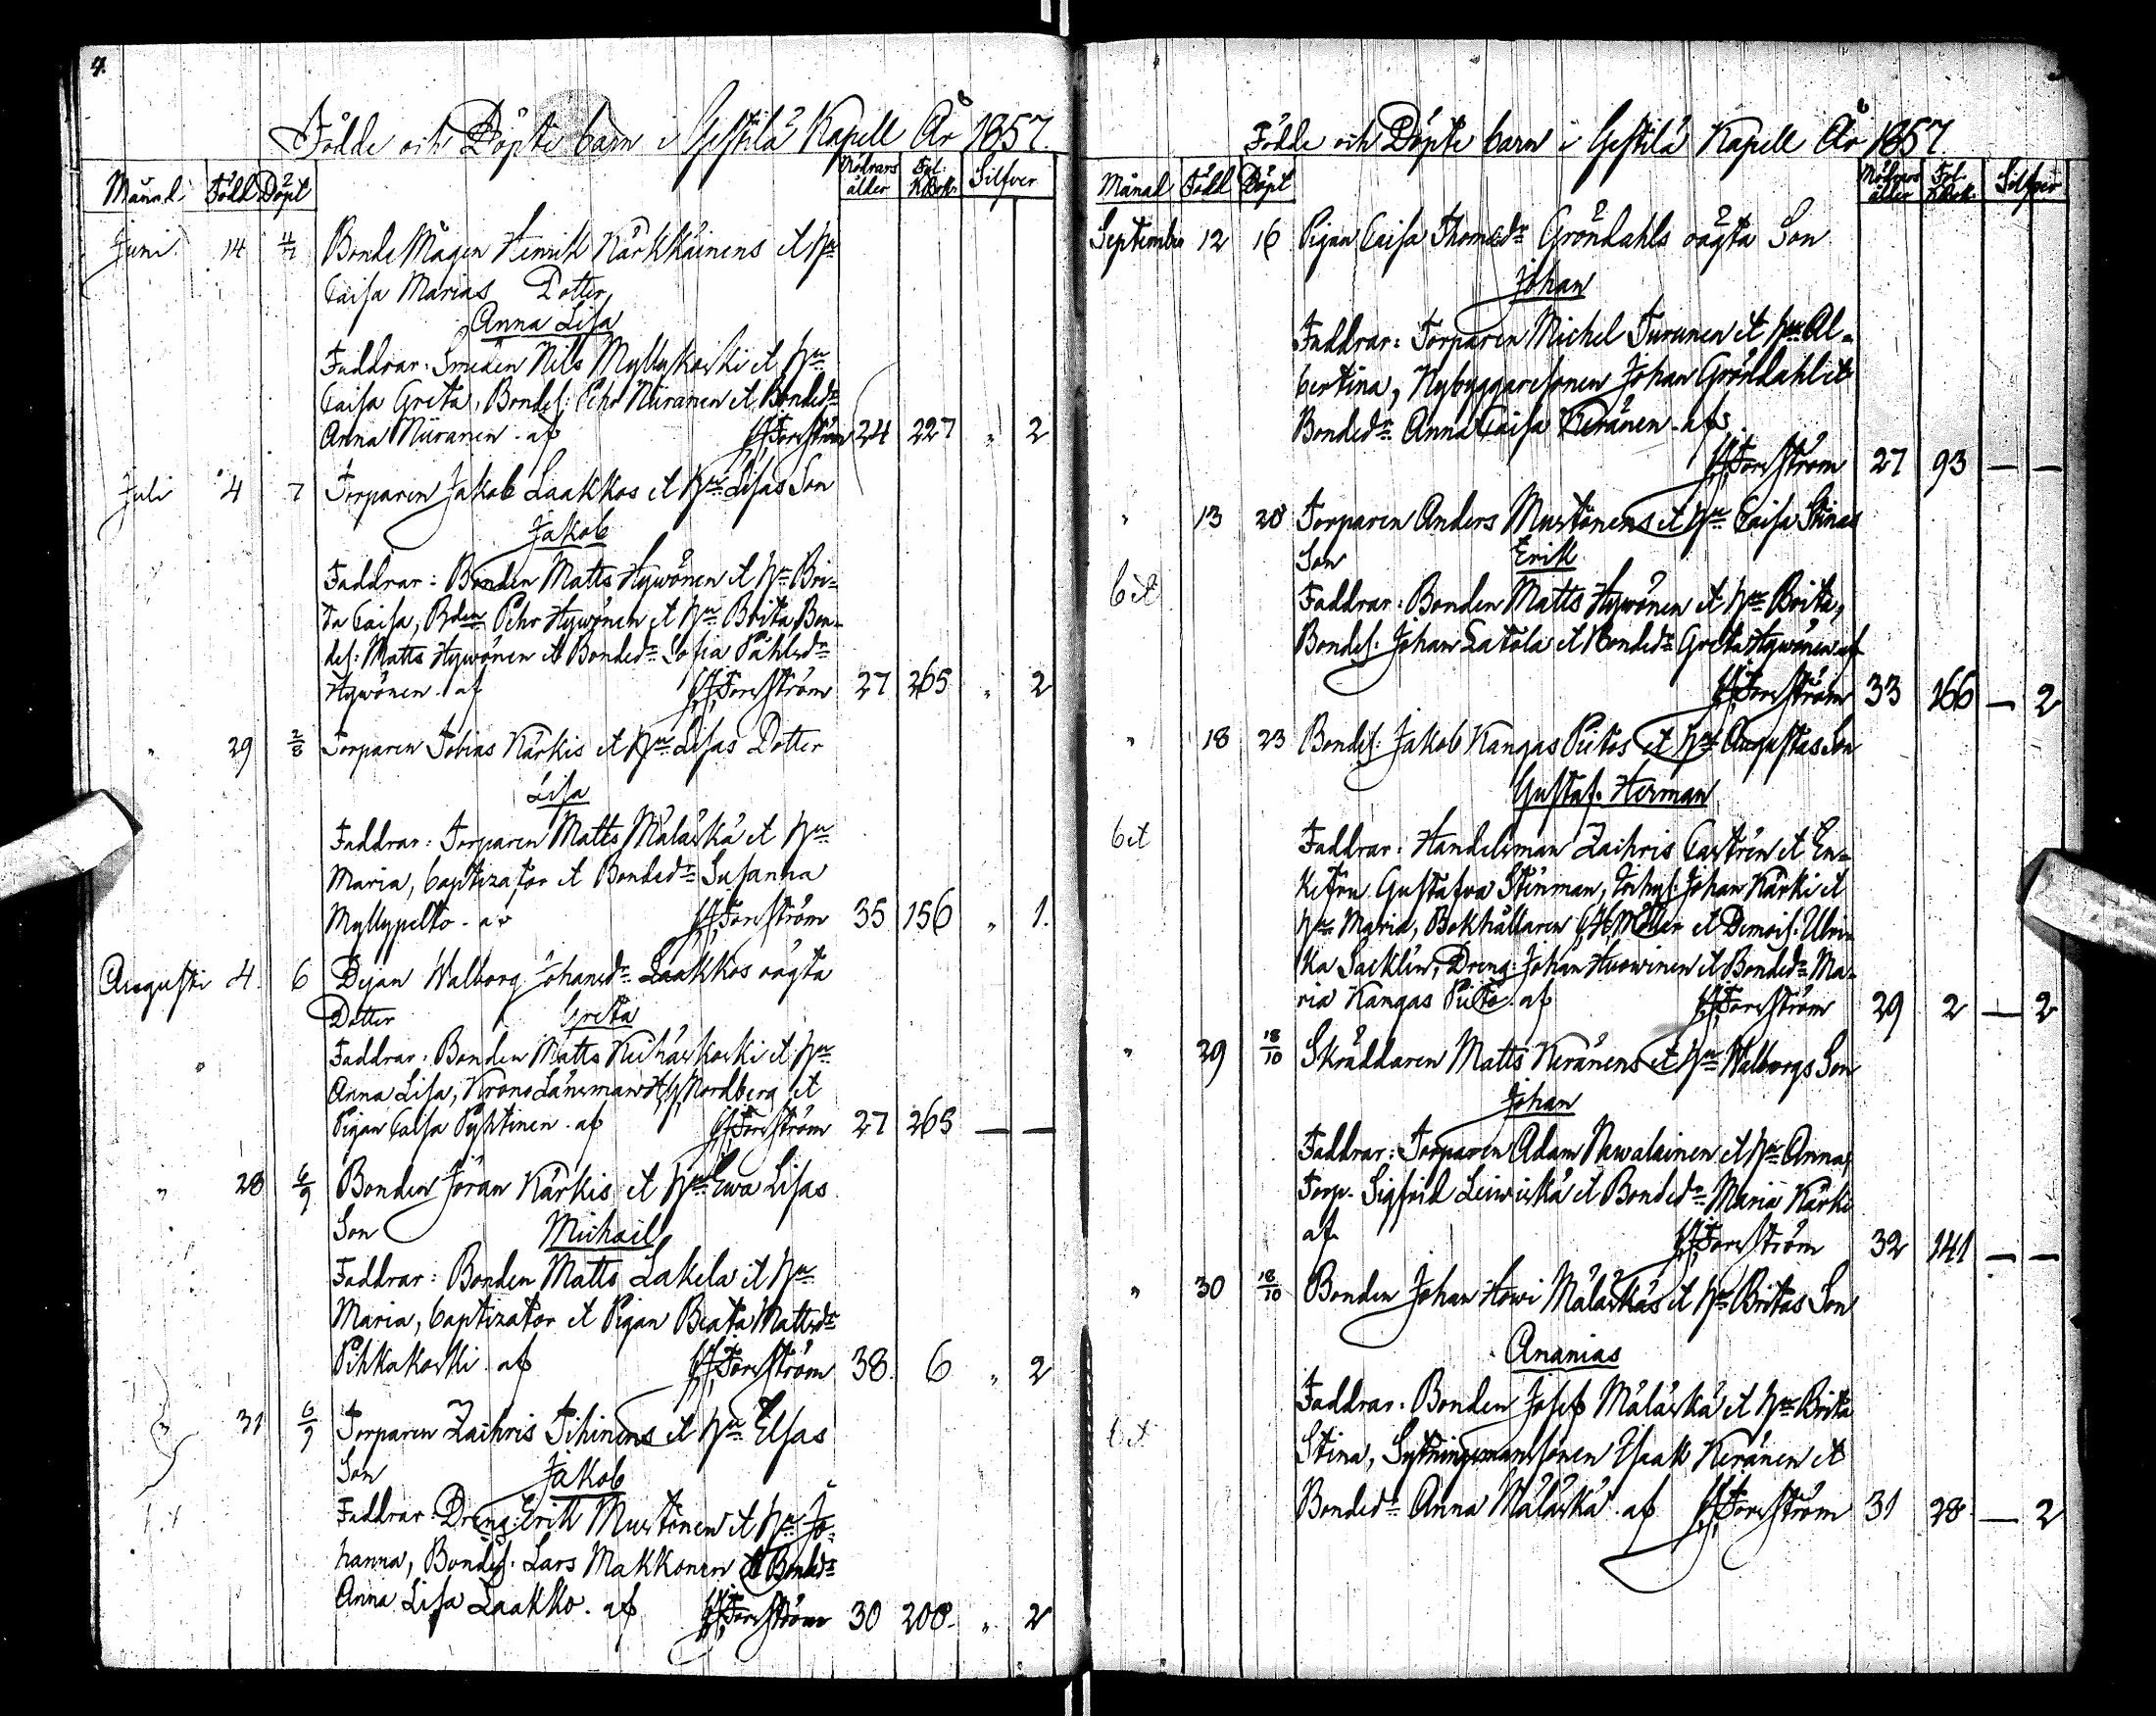 4.
Födde och Döpte barn i Gestilä Kapell År 1857.
Månad. Född Döpt Mödrars ålder Fol. K.Bok. Silfver
Juni. 14 4/7 Bonde Mågen Henrik Kärkkäinens et Hu
Caisa Marias Dotter
Anna Lisa
Faddrar: Smeden Nils Myllykoski et Hu
Caisa Greta, Bondes. Pehr Niiranen et Bondedr
Anna Niiranen. af Forsström 24 227 " 2
Juli 4 7 Torparen Jakob Laakkos et Hu Lisas Son
Jakob
Faddrar: Bonden Matts Hywönen et Hu Bri-
ta Caisa, Bden Pehr Hywönen et Hu Brita, Bon-
des. Matts Hywönen et Bondedr Sofia Påhlsdr
Hywönen. af Forsström 27 265 " 2
" 29 2/8 Torparen Tobias Kärkis et Hu Lisas Dotter
Lisa
Faddrar: Torparen Matts Mäläskä et Hu
Maria, baptizator et Bondedr Susanna
Myllypelto. af Forsström 35 156 " 1.
Augusti 4. 6 Pejan Walborg Johansdr Laakkos oägta
Dotter Greta
Faddrar: Bonden Matts Keihäskoski et Hu
Anna Lisa, Krono Länsman Nordberg et
Pigan Caisa Pyhtinen. af Forsström 27 265 — —
" 28 6/9 Bonden Jöran Kärkis et Hu Ewa Lisas
Son Michail
Faddrar: Bonden Matts Lakela et Hu
Maria, baptizator et Pigan Beata Mattsdr
Pihkakoski. af Forsström 38. 6 " 2
31 6/9 Torparen Zachris Tihinens et Hu Elsas
Son Jakob
Faddrar: Dreng: Erik Mustonen et Hu Jo-
hanna, Bondes. Lars Makkonen et Bondedr
Anna Lisa Laakko. af Forsström 30 208. " 2
Födde och Döpte barn i Gestilä Kapell År 1857.
Månad Född Döpt Mödrars ålder Fol. K.Bok. Silfver
September 12 16 Pigan Caisa Thomasdr Gröndahls oägta Son
Johan
Faddrar: Torparen Michel Turunen et Hu Al-
bertina, Nybyggaresonen Johan Gröndahl et
Bondedr Anna Caisa Keränen. af
Forsström 27 93 — —
" 13 20 Torparen Anders Mustonens et Hu Caisa Stinas
Son Erik
Faddrar: Bonden Matts Hywönen et Hu Brita,
Bondes. Johan Latola et Bondedr Greta Hywönen af
Forsström 33 166 — 2
" 18 23 Bondes. Jakob Kangas Piitos et Hu Augustas Son
Gustaf Herman
Faddrar: Handelsman Zachris Castrén et En-
kefru Gustafva Stenman, Inhys. Johan Kärki et
Hu Maria, Bokhållaren Möller et Demois. Ulri-
ka Sacklén, Dreng: Johan Huowinen et Bondedr Ma-
ria Kangas Piito. af Forsström 29 2 — 2
" 29 18/10 Skräddaren Matts Keränens et Hu Walborgs Son
Johan
Faddrar: Torparen Adam Newalainen et Hu Anna,
Torp. Sigfrid Leiwiskä et Bondedr Maria Kärki
af Forsström 32 141 — —
" 30 18/10 Bonden Johan Howi Mäläskäs et Hu Britas Son
Ananias
Faddrar: Bonden Josef Mäläskä et Hu Brita
Stina, Sytningsmanssonen Isaak Keränen et
Bondedr Anna Mäläskä. af Forsström 31 28 — 2